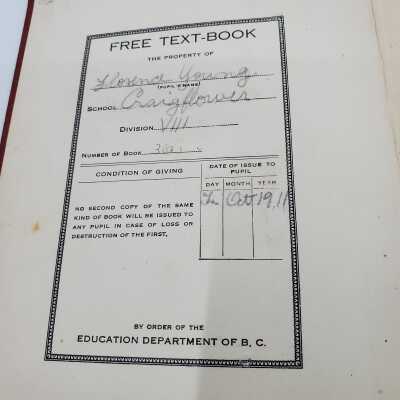 FREE TEXT-BOOK
THE PROPERTY OF
Florence Young
(PUPIL'S NAME)
SCHOOL Craigflower
DIVISION VIII
NUMBER OF BOOK
CONDITION OF GIVING
DATE OF ISSUE TO PUPIL
DAY MONTH YEAR
Oct 19,11
NO SECOND COPY OF THE SAME
KIND OF BOOK WILL BE ISSUED TO
ANY PUPIL IN CASE OF LOSS OR
DESTRUCTION OF THE FIRST.
BY ORDER OF THE
EDUCATION DEPARTMENT OF B. C.